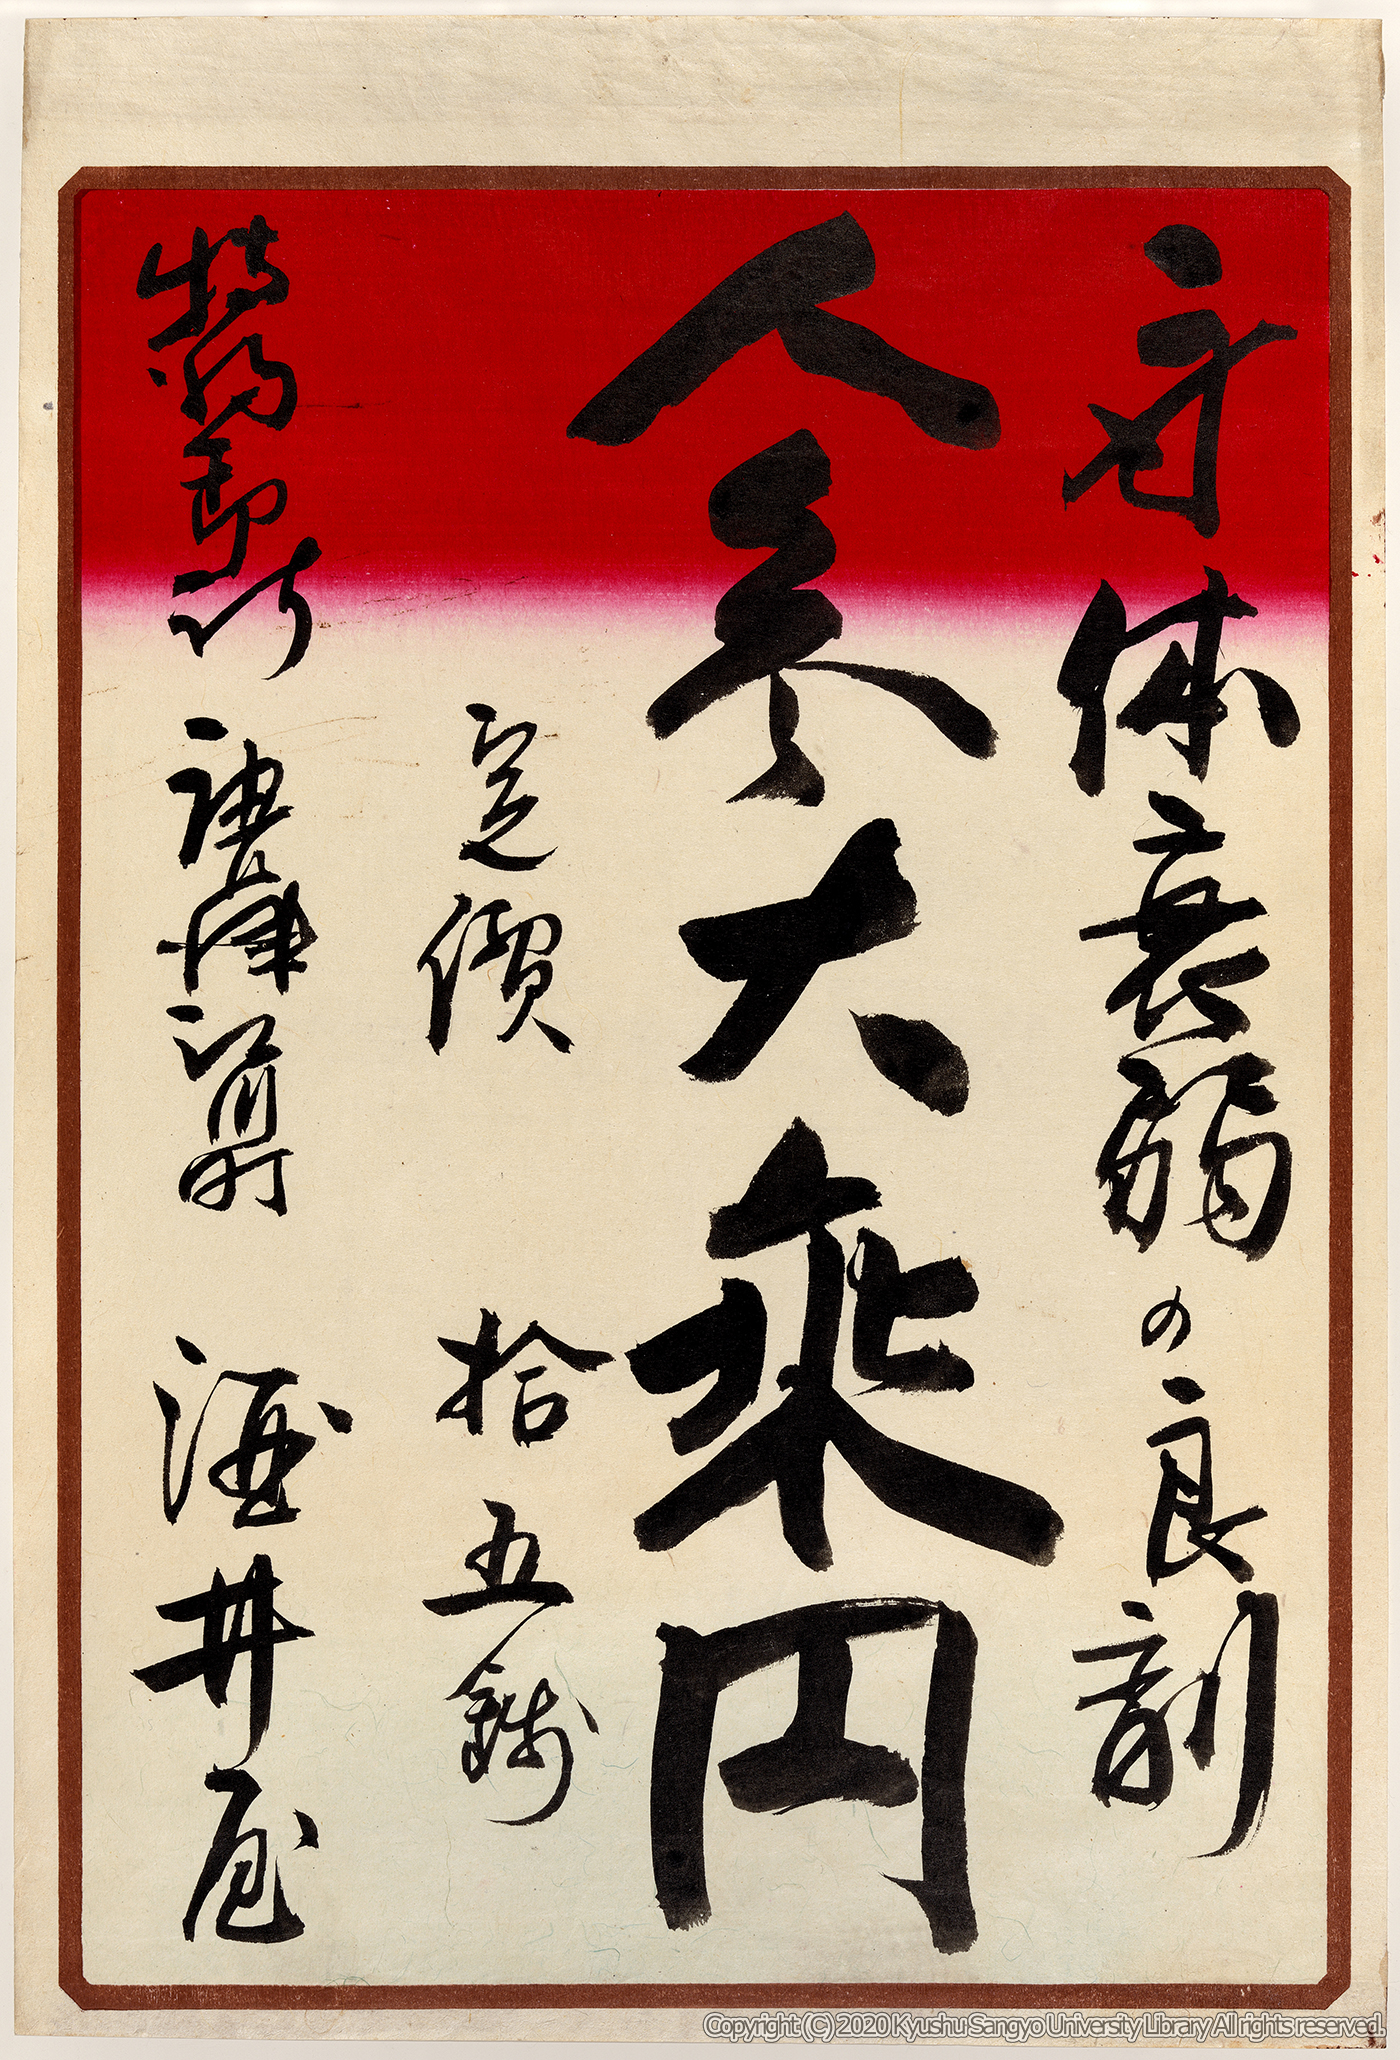 身体衰弱の良剤
人参大乗円
定價 拾五錢
特約 所 唐津江川町 酒井屋
Copyright (C) 2020 Kyushu Sangyo University Library All rights reserved.